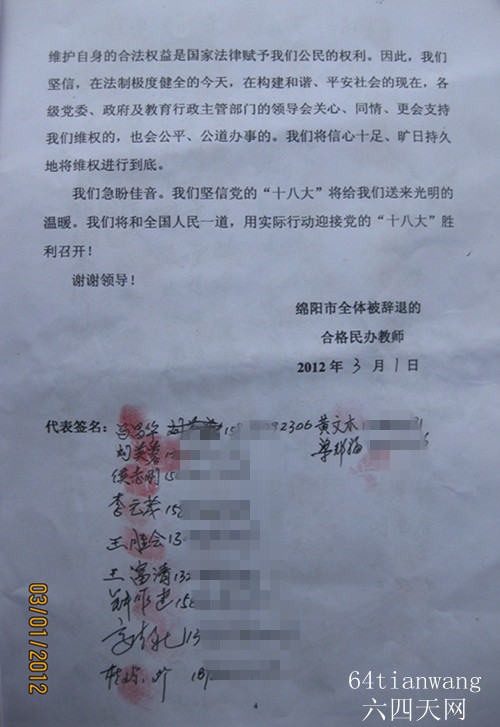 维护自身的合法权益是国家法律赋予我们公民的权利。因此，我们
坚信，在法制极度健全的今天，在构建和谐、平安社会的现在，各
级党委、政府及教育行政主管部门的领导会关心、同情、更会支持
我们维权的，也会公平、公道办事的。我们将信心十足、旷日持久
地将维权进行到底。
我们急盼佳音。我们坚信党的“十八大”将给我们送来光明的
温暖。我们将和全国人民一道，用实际行动迎接党的“十八大”胜
利召开！
谢谢领导！
绵阳市全体被辞退的
合格民办教师
2012年3月1日
代表签名：
黄文本
李云茂
王胜会 13
王富清 132
4
03/01/2012
64tianwang
六四天网